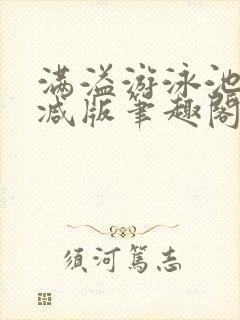 满溢游泳池
减版笔趣阁
须河篤志